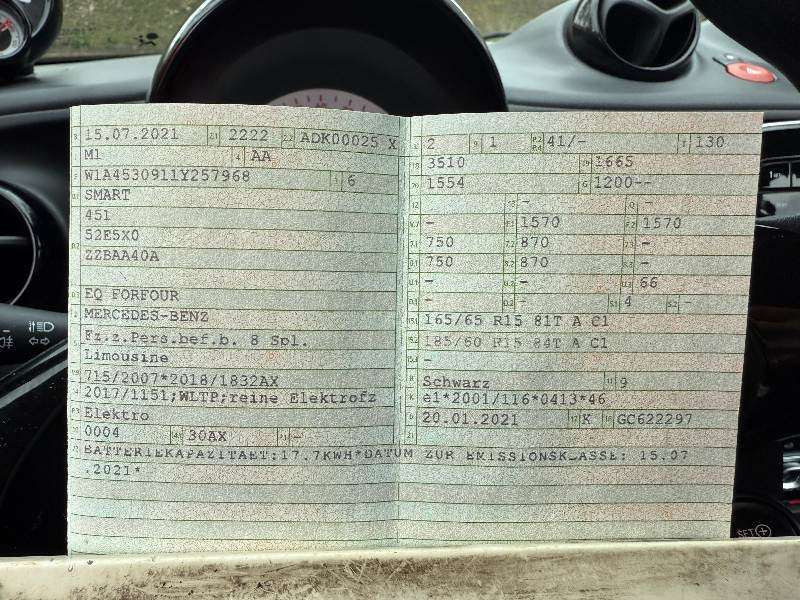 15.07.2021 2222 ADK00025 X
M1 AA
W1A4530911Y257968 6
SMART
451
52E5X0
ZZBAA40A
EQ FORFOUR
MERCEDES-BENZ
Fz.z.Pers.bef.b. 8 Spl.
Limousine
715/2007*2018/1832AX
2017/1151;WLTP;reine Elektrofz
Elektro
0004 30AX -
BATTERIEKAPAZITAET:17.7KWH*DATUM ZUR EMISSIONSKLASSE: 15.07
.2021*
2 9 1 41/- T 130
3510 1665
1554 G 1200--
12 - - Q -
- 1570 1570
750 870 -
750 870 -
- - 66
- - 4 -
165/65 R15 81T A C1
185/60 R15 84T A C1
-
Schwarz 9
e1*2001/116*0413*46
20.01.2021 K GC622297
SET